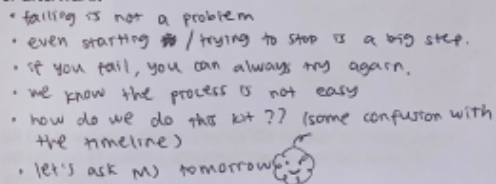 • failing is not a problem
• even starting / trying to stop is a big step.
• if you fail, you can always try again.
• we know the process is not easy
• how do we do this kit ?? (some confusion with
the timeline)
• let's ask MJ tomorrow